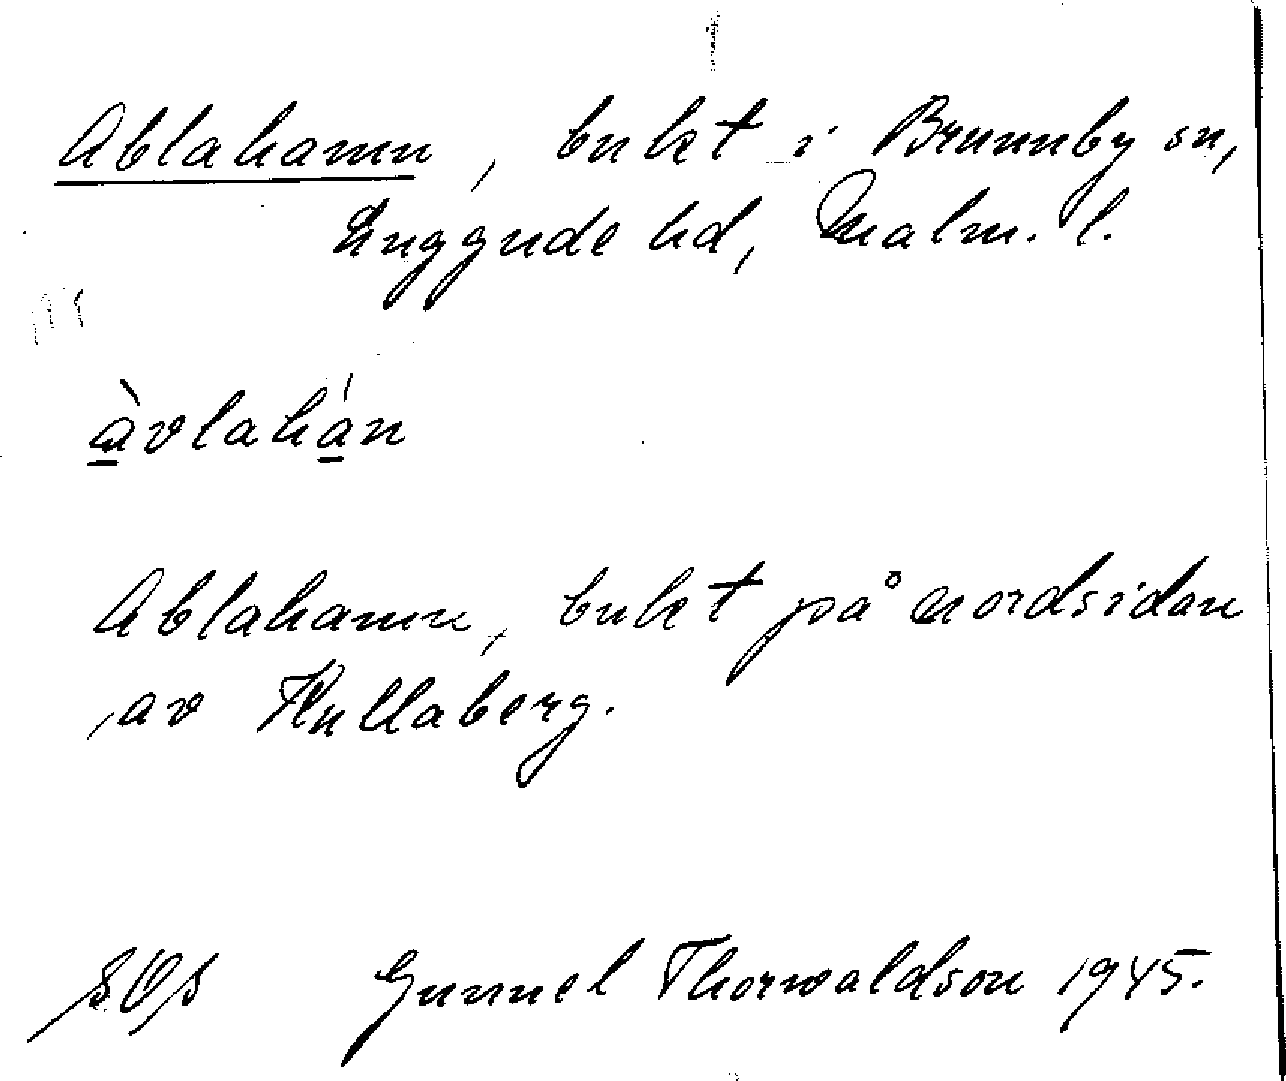 Ablahamn, bukt i Brunnby sn,
Luggude hd, Malm. l.
àvlahán
Ablahamn, bukt på nordsidan
av Kullaberg.
Gunnel Thorwaldson 1945.